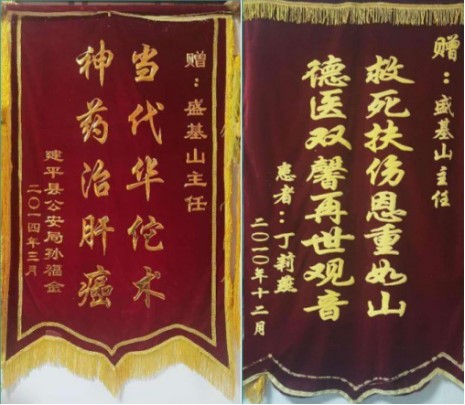 赠：盛基山主任
当代华佗术
神药治肝癌
建平县公安局孙福金
二〇一四年三月
赠：盛基山主任
救死扶伤恩重如山
德医双馨再世观音
患者：丁莉燕
二〇一〇年十二月